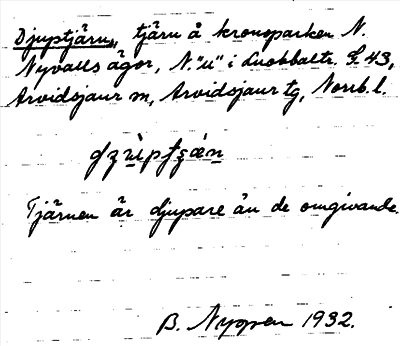 Djuptjärn, tjärn å kronoparken N.
Nyvalls ägor, N. "u" i Luobbaltr. S. 43,
Arvidsjaur sn, Arvidsjaur tg, Norrb. l.
Tjärnen är djupare än de omgivande.
B. Nygren 1932.